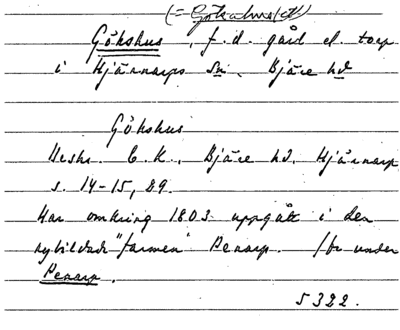 (= Gökaluset)
Gökshus, f.d. gård el. torp
i Hjärnarps Sn, Bjäre hd
Gökshus
Beskr. C.K., Bjäre hd, Hjärnarp,
s. 14-15, 29.
Har omkring 1803 uppgått i den
nybildade "farmen" Penarp. Se under
Penarp.
5322.